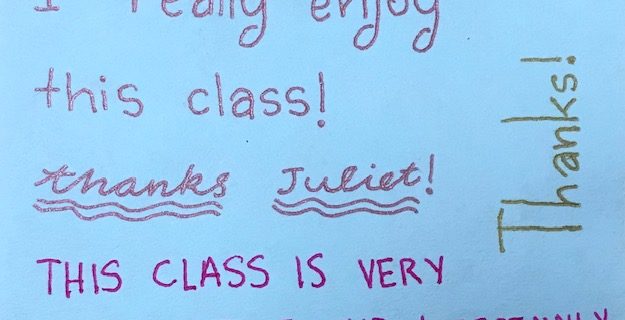 I really enjoy
this class!
thanks Juliet!
Thanks!
THIS CLASS IS VERY